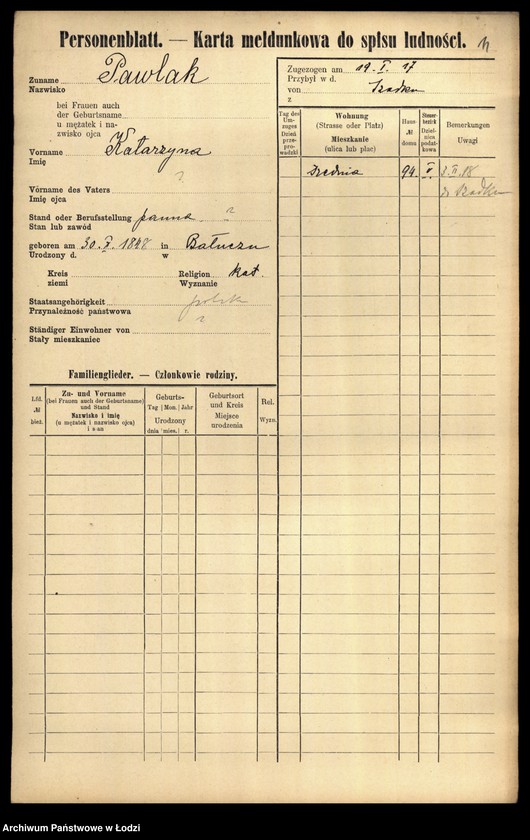 Personenblatt. — Karta meldunkowa do spisu ludności.
Zuname Pawlak
Nazwisko
bei Frauen auch
der Geburtsname
u mężatek i na-
zwisko ojca
Vorname Katarzyna
Imię
?
Vorname des Vaters
Imię ojca
Stand oder Berufsstellung panna ?
Stan lub zawód
geboren am 30. X. 1898 in Bałuczu
Urodzony d. w
Kreis
ziemi
Religion kat.
Wyznanie
Staatsangehörigkeit polsk
Przynależność państwowa
?
Ständiger Einwohner von
Stały mieszkaniec
Familienglieder. — Członkowie rodziny.
Lfd. № bież.
Zu- und Vorname
(bei Frauen auch der Geburtsname)
und Stand
Nazwisko i imię
(u mężatek i nazwisko ojca)
Geburts-
Tag Mon. Jahr
Urodzony
dnia mies. r.
Geburtsort
und Kreis
Miejsce
urodzenia
Rel.
Wyzn.
Zugezogen am 19. I. 17
Przybył w d.
von Szadku
z
Tag des
Um-
zuges
Dzień
prze-
prowadzki
Wohnung
(Strasse oder Platz)
Mieszkanie
(ulica lub plac)
Haus-
№
domu
Steuer-
bezirk
Dziel-
nica
podat-
kowa
Bemerkungen
Uwagi
Średnia 94. V 2. II. 18
do Szadku
Archiwum Państwowe w Łodzi